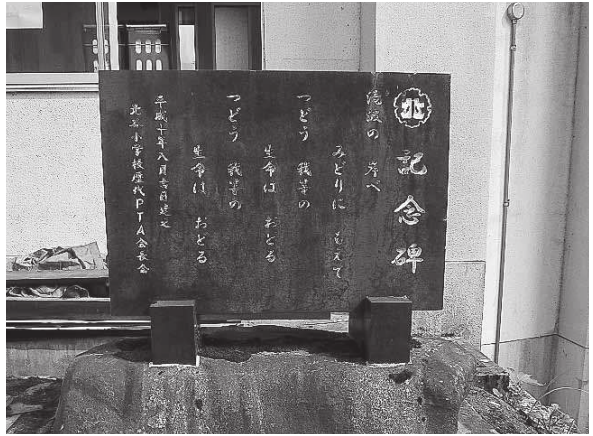 北
記念碑
の 岸べ
みどりに もえて
つどう 我等の
生命は おどる
つどう 我等の
生命は おどる
平成十年八月吉日建之
小学校歴代PTA会長会